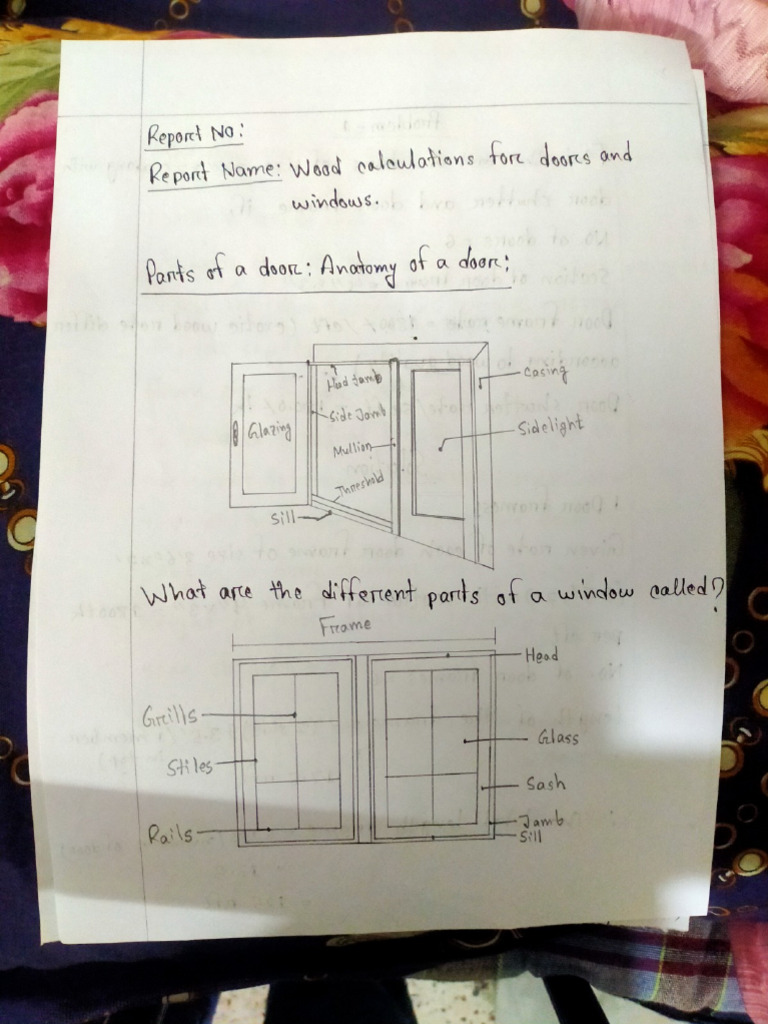 Report No:
Report Name: Wood calculations for doors and
windows.
Parts of a door: Anatomy of a door:
Head Jamb
Casing
Side Jamb
Glazing
Sidelight
Mullion
Threshold
Sill
What are the different parts of a window called?
Frame
Head
Grills
Glass
Stiles
Sash
Jamb
Rails
Sill